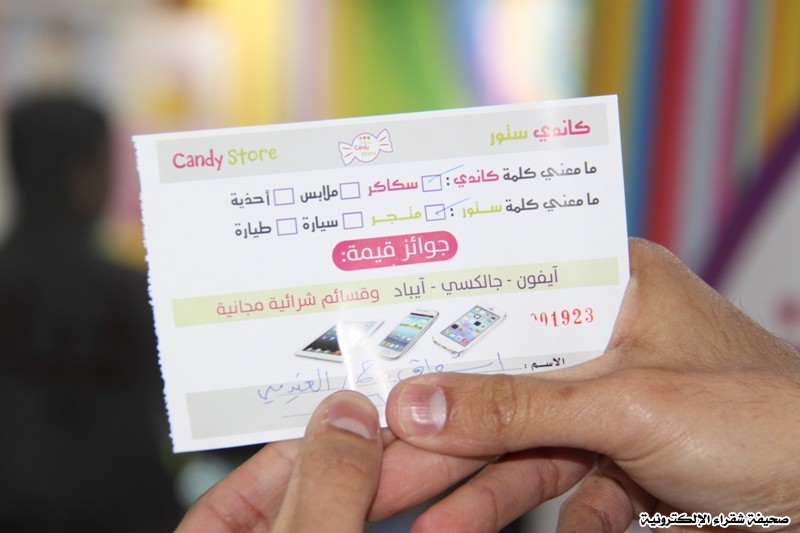 كاندي ستور
Candy Store
Candy Store
ما معني كلمة كاندي : سكاكر ملابس أحذية
ما معني كلمة ستور : متجر سيارة طيارة
جوائز قيمة:
آيفون - جالكسي - آيباد وقسائم شرائية مجانية
01923
الاسم :
صحيفة شقراء الإلكترونية